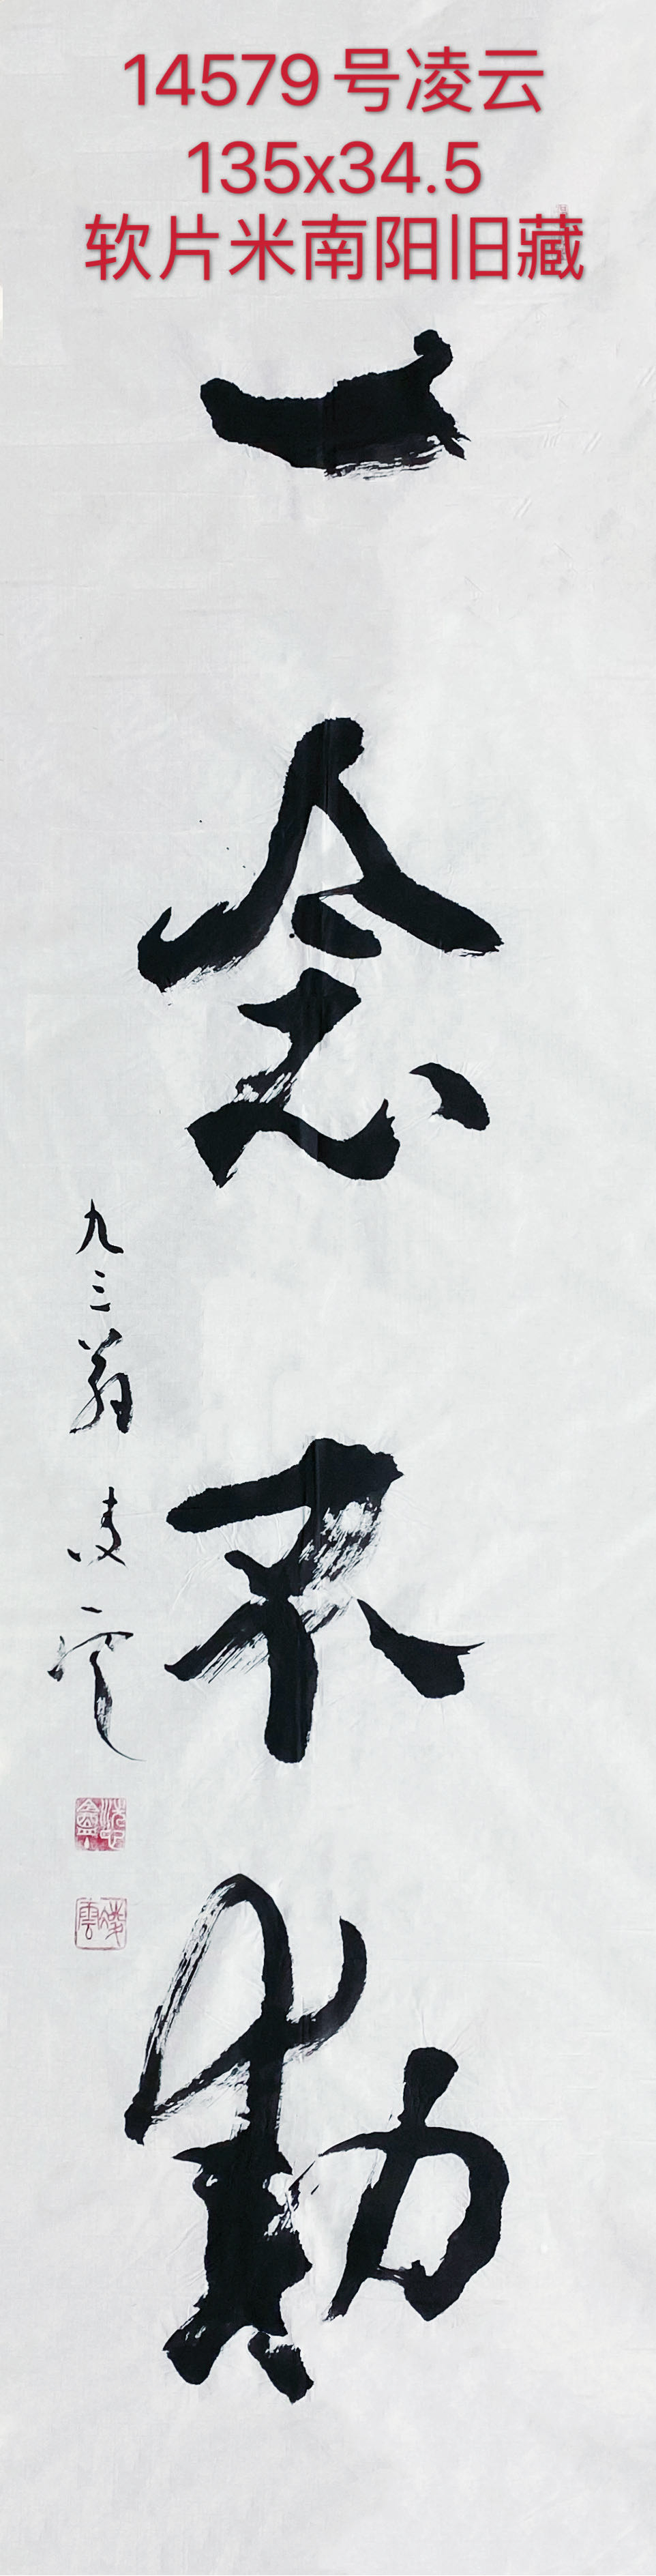 14579号凌云
135x34.5
软片米南阳旧藏
一念不動
九三翁 凌雲
凌雲